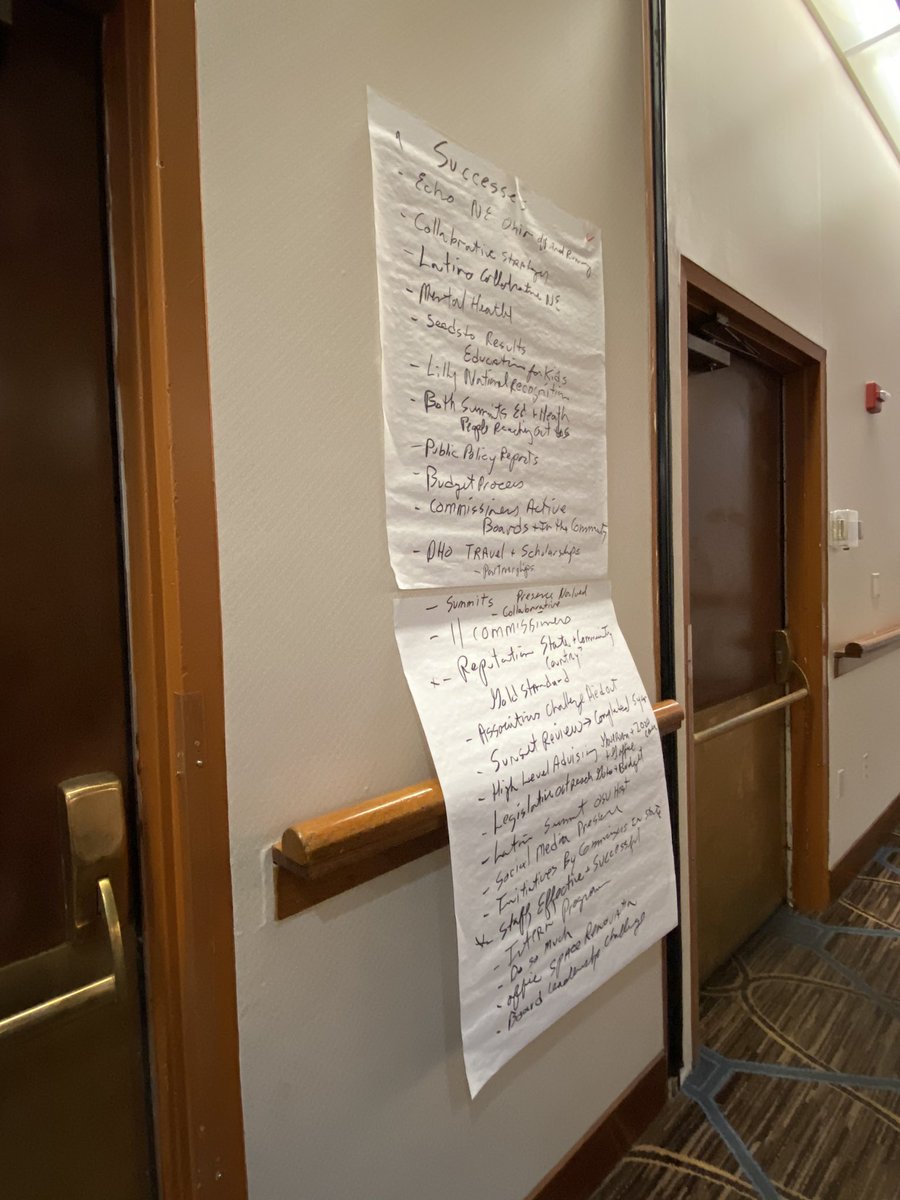 Successes
- Echo NE Ohio off and Running
- Collabrative Strategy
- Latino Collabrative NE
- Mental Health
- Seeds to Results
Education for Kids
- Lilly National Recognition
- Both Summits Ed + Heath
People Reaching Out to us
- Public Policy Reports
- Budget Process
- Commissiners Active
Boards + In the Community
- DHO TRAVEL + Scholarships
- Partnerships
- Summits Presence Valued
- Collaborative
- 11 Commissiners
* - Reputation State + Community
Country
Gold Standard
- Associations Challenge
- Sunset Review → Completed
- High Level Advising
- Legislative Outreach + Budget
- Latino Summit OSU Host
- Social Media Presence
- Initiatives By Commissiners In State
* Staff Effective + Successful
- Intern Program
- Do so much
- office SPACE Renovation
- Board Leadership Challenge